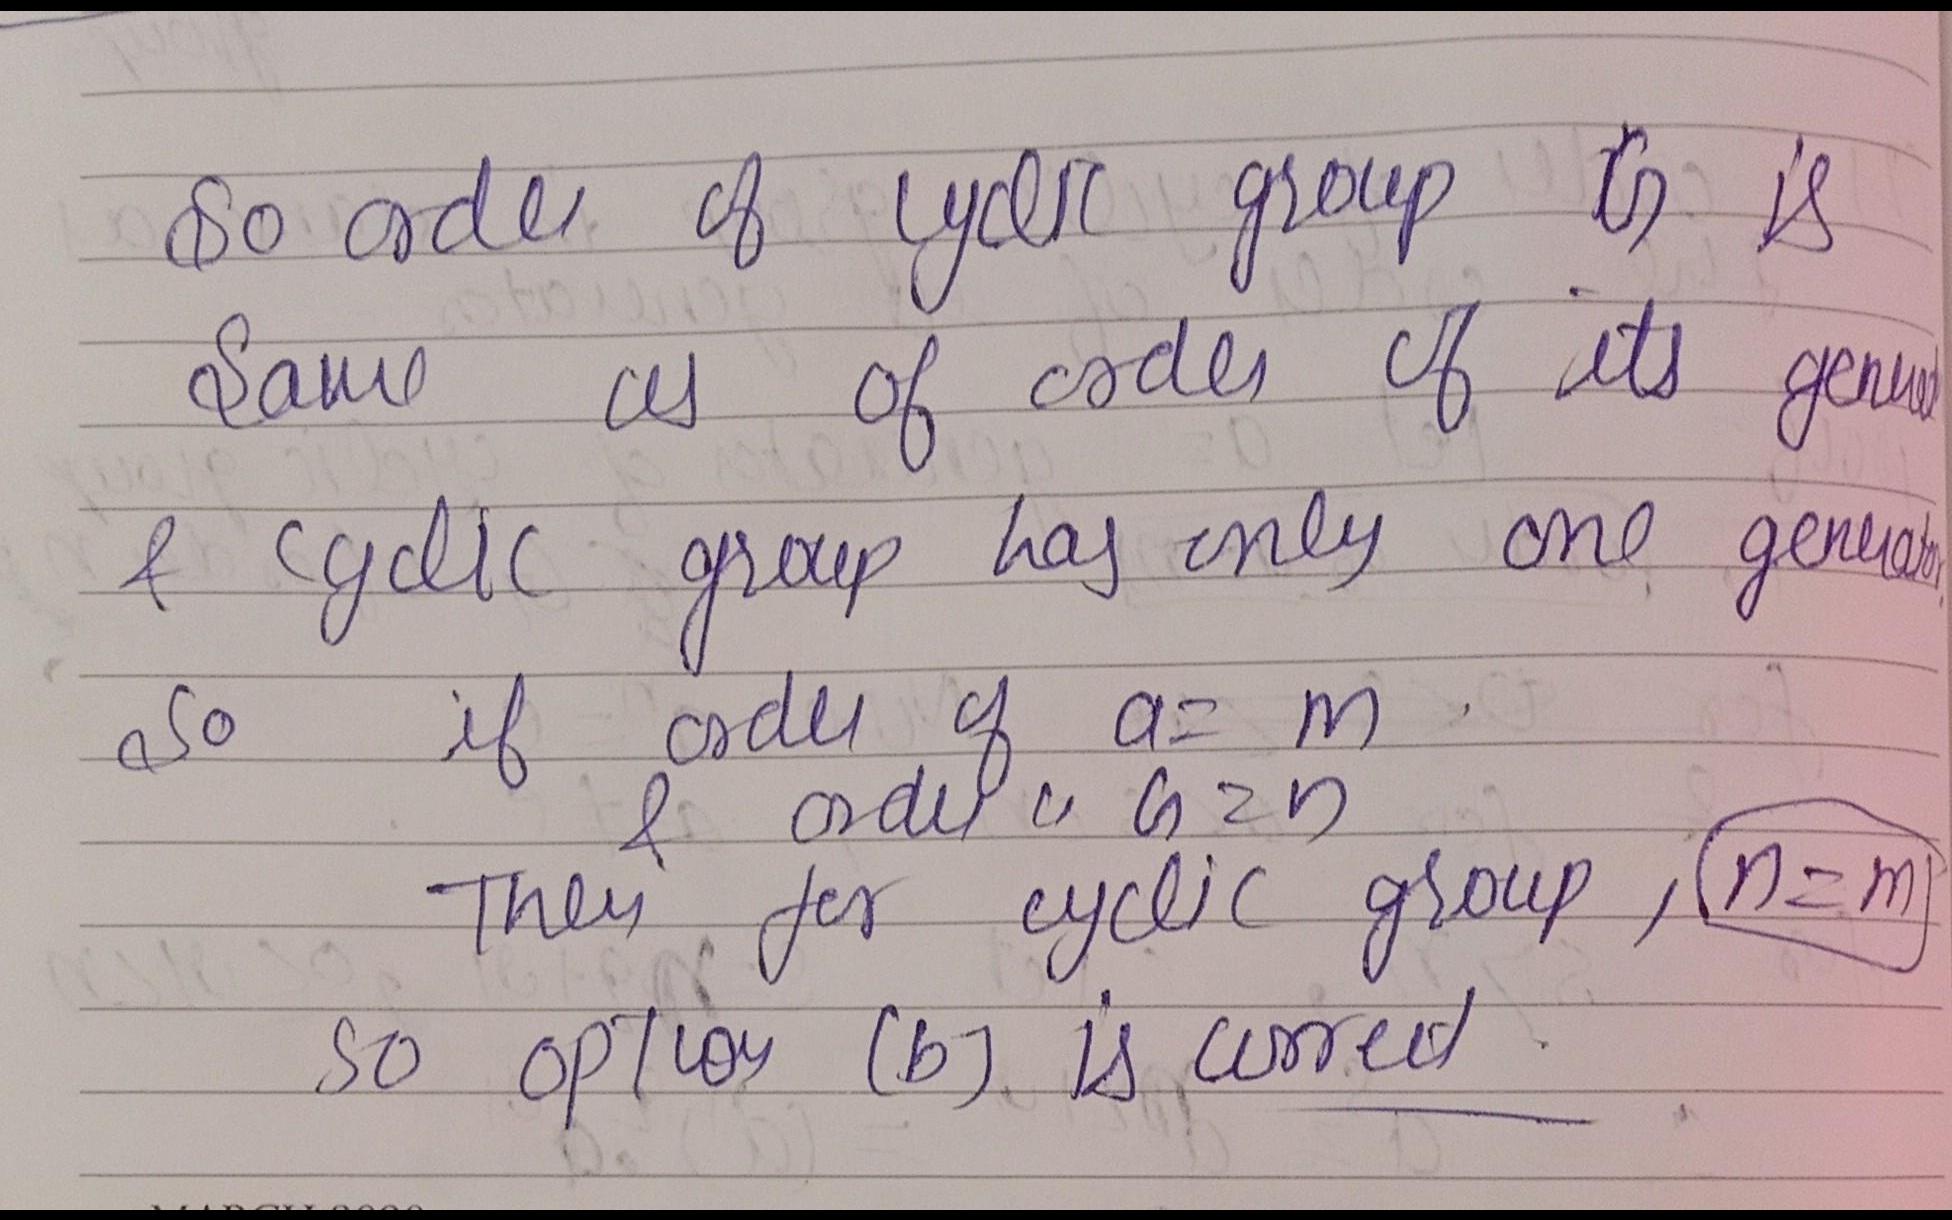 So order of cyclic group G is
Same as of order of its generat
& cyclic group has only one generator.
So if order of a = m
& order " G = n
Then for cyclic group, n = m
so option (b) is correct.
MARCH 2020